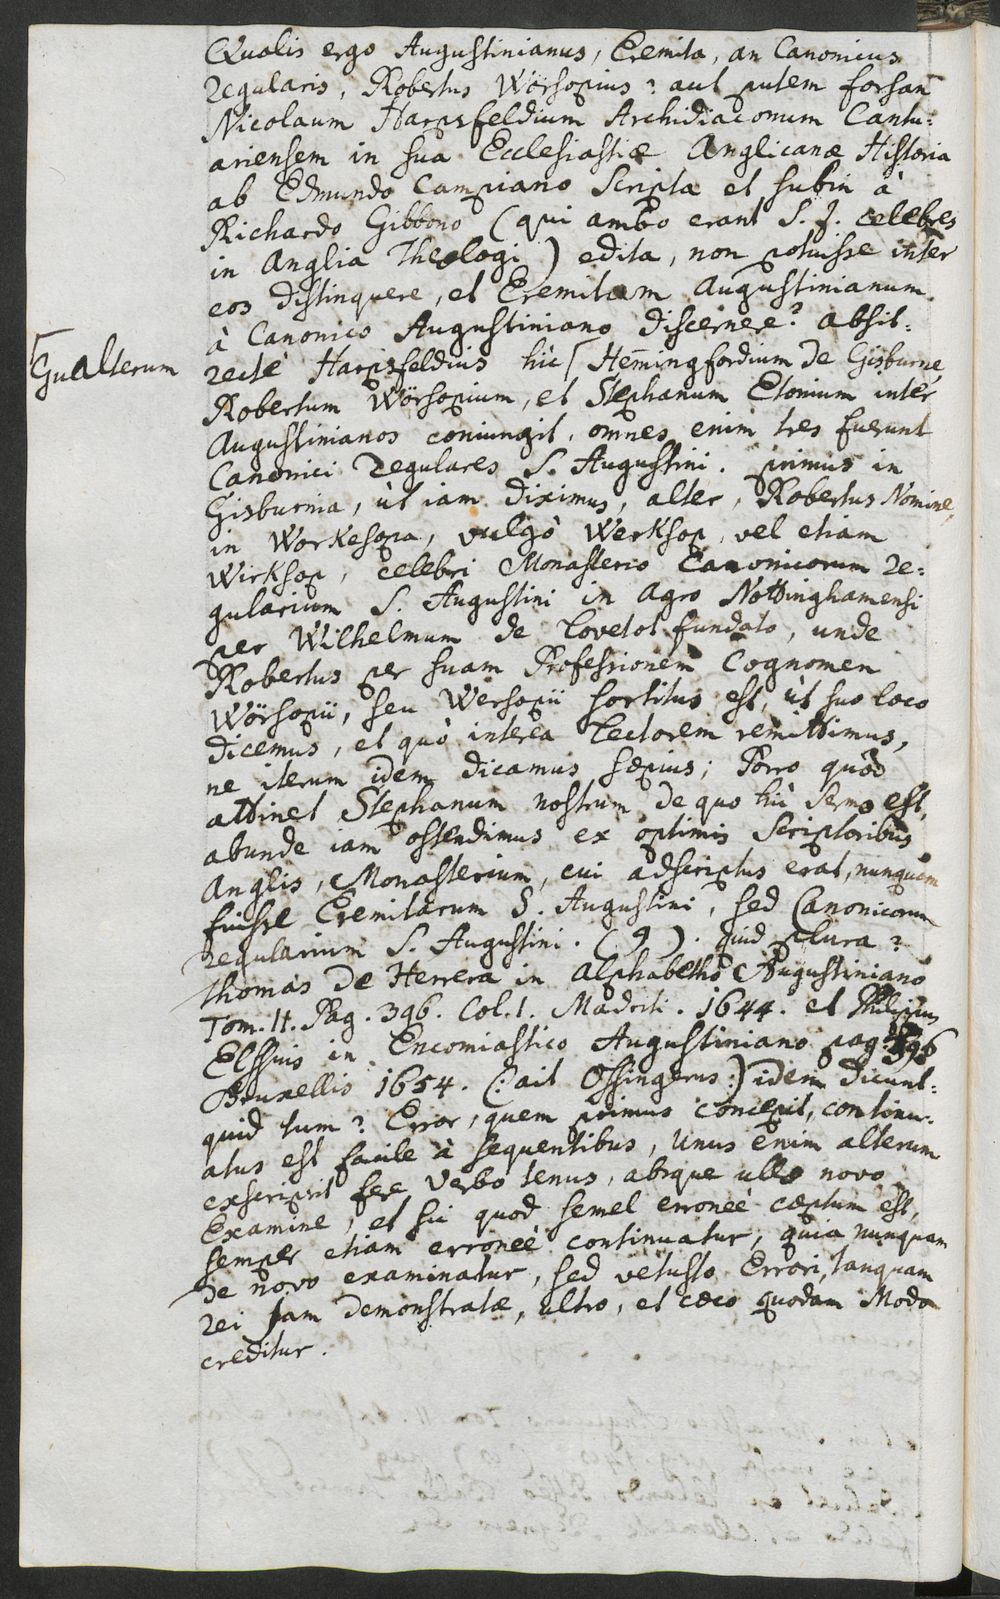 Qualis ergo Augustinianus, Eremita, an Canonicus
regularis, Robertus Wörsopius? aut putem forsan
Nicolaum Harpsfeldium Archidiaconum Cantu:
ariensem in sua Ecclesiastiæ Anglicanæ Historia
ab Edmundo Campiano Scripta et subin à
Richardo Gibbono (qui ambo erant S. J. celebres
in Anglia Theologi) edita, non potuisse inter
eos distinguere, et Eremitam Augustinianum
à Canonico Augustiniano discernere? absit:
rectè Harpsfeldius hic ⌈ Hemingfordium de Gisburne,
⌈Gualterum
Robertum Wörsopium, et Stephanum Etonium inter
Augustinianos coniungit, omnes enim tres fuerunt
Canonici regulares S. Augustini. primus in
Gisburnia, ùt iam diximus, alter, Robertus Nomine,
in Workesopa, vulgò Werksop, vel etiam
Wirksop, celebri Monasterio Canonicorum re:
gularium S. Augustini in agro Nottinghamensi
per Wilhelmum de Lovetot fundato, unde
Robertus per suam Professionem Cognomen
Wörsopii, seu Wersopii sortitus est, ùt suo loco
dicemus, et quò interea Lectorem remittimus,
ne iterum idem dicamus sæpius; Porro quod
attinet Stephanum nostrum de quo hic sermo est,
abunde iam ostendimus ex optimis Scriptoribus
Anglis, Monasterium, cui adscriptus erat, nunquam
fuisse Eremitarum S. Augustini, sed Canonicorum
regularium S. Augustini. (9). quid plura?
Thomas de Herrera in alphabetho Augustiniano
Tom. II. Pag. 396. Col. 1. Madriti. 1644. et Philippus
Elssius in Encomiastico Augustiniano pag. 396
Bruxellis 1654. (: ait Ossingerus:) idem dicunt:
quid tum? Error, quem primus concepit, continu:
atus est facile à sequentibus, Unus enim alterum
exscripsit fere verbo tenus, absque ullo novo
Examine, et sic quod semel erroneè cæptum est,
semper etiam erroneè continuatur, quia nunquam
de novo examinatur, sed vetusto Errori, tanquam
rei jam demonstratæ, ultro, et cæco quodam Modo
creditur.